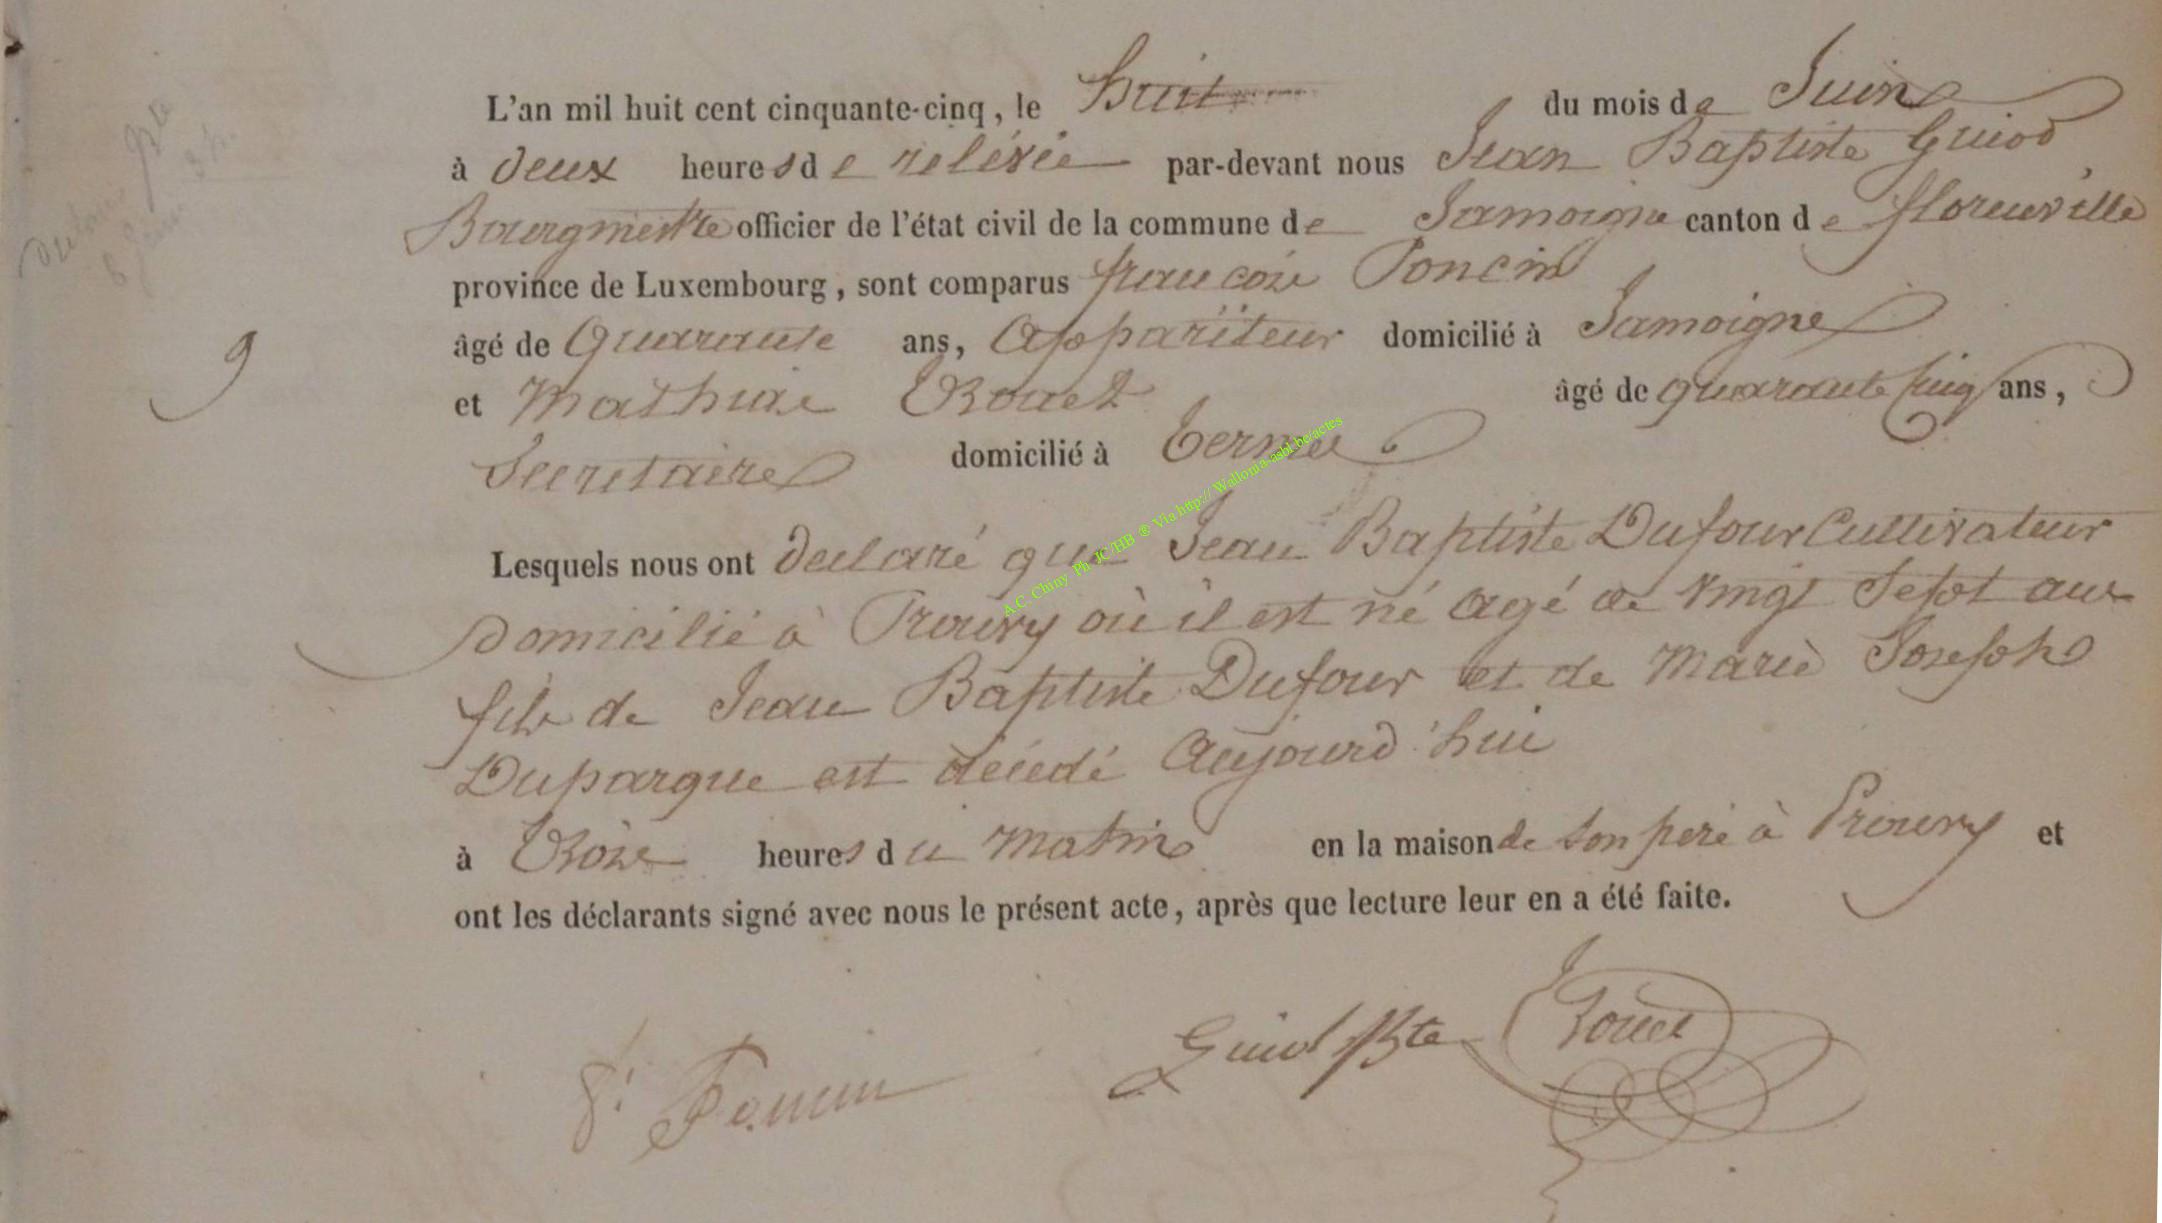 L'an mil huit cent cinquante-cinq, le huit du mois de Juin
à deux heures de relevée par-devant nous Jean Baptiste Guiod
Bourgmestre officier de l'état civil de la commune de Jamoigne canton de florenville
province de Luxembourg, sont comparus francois Poncin
âgé de Quarante ans, Appariteur domicilié à Jamoigne
9
et Mathieu Rouet âgé de quarante cinq ans,
Secretaire domicilié à termes
Lesquels nous ont declaré que Jean Baptiste Dufour Cultivateur
Domicilié à Prouvy où il est né agé de vingt Sept ans
fils de Jean Baptiste Dufour et de Marie Joseph
Duparque est décédé Aujourd'hui
à trois heures du Matin en la maison de son pere à Prouvy et
ont les déclarants signé avec nous le présent acte, après que lecture leur en a été faite.
Guiod JBte Rouet
f. Poncin
A.C. Chiny Ph JC/HB ® Via http:// Wallonia-asbl.be/actes